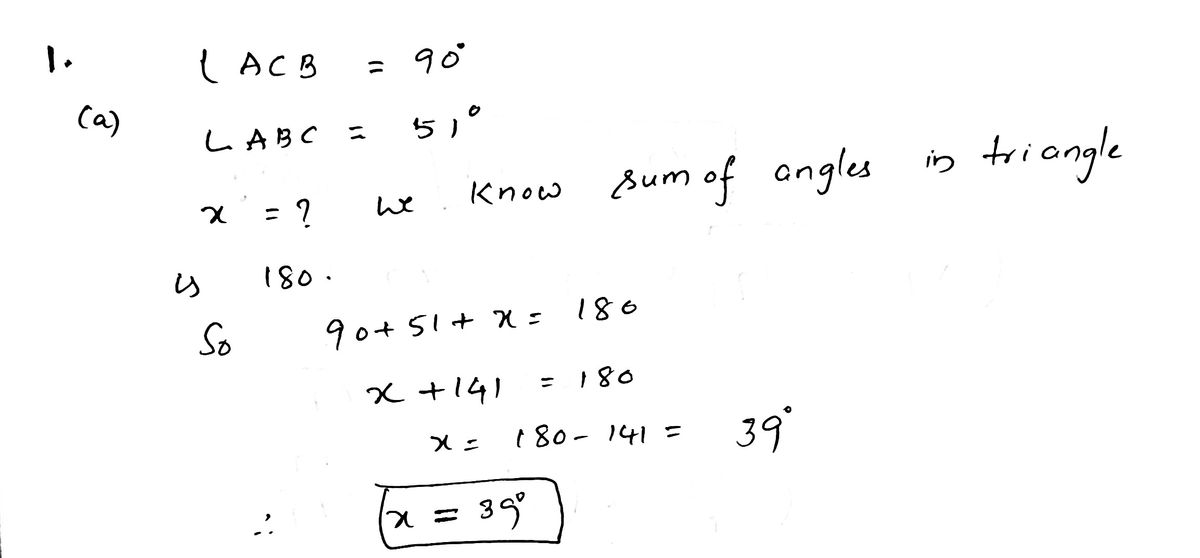 1. ∠ACB = 90°
(a) ∠ABC = 51°
x = ? we know sum of angles in triangle
is 180.
So 90+51+x = 180
x+141 = 180
x = 180-141 = 39°
∴ x = 39°